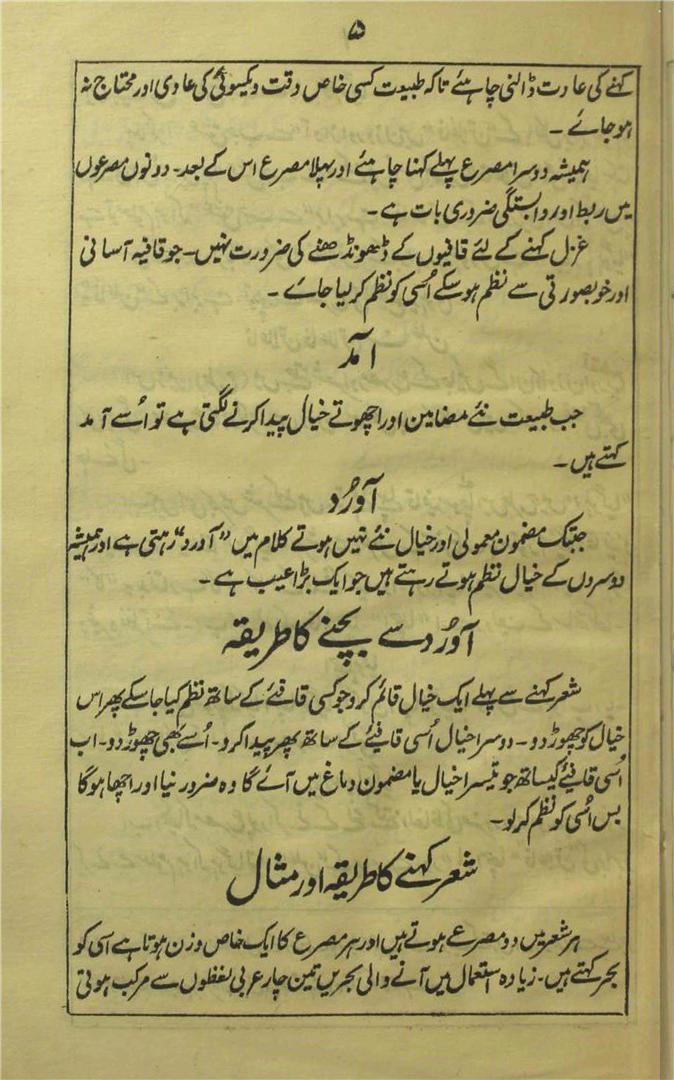 ۵
کہنے کی عادت ڈالنی چاہئے تاکہ طبیعت کسی خاص وقت و یکسوئی کی عادی اور محتاج نہ
ہو جائے ۔
ہمیشہ دوسرا مصرع پہلے کہنا چاہئے اور پہلا مصرع اس کے بعد ۔ دونوں مصرعوں
میں ربط اور وابستگی ضروری بات ہے ۔
غزل کہنے کے لئے قافیوں کے ڈھونڈھنے کی ضرورت نہیں ۔ جو قافیہ آسانی
اور خوبصورتی سے نظم ہو سکے اُسی کو نظم کر لیا جائے ۔
آمد
جب طبیعت نئے مضامین اور اچھوتے خیال پیدا کرنے لگتی ہے تو اُسے آمد
کہتے ہیں ۔
آورُد
جبتک مضمون معمولی اور خیال نئے نہیں ہوتے کلام میں “آورد” رہتی ہے اور ہمیشہ
دوسروں کے خیال نظم ہوتے رہتے ہیں جو ایک بڑا عیب ہے ۔
آورُد سے بچنے کا طریقہ
شعر کہنے سے پہلے ایک خیال قائم کرو جو کسی قافئے کے ساتھ نظم کیا جا سکے پھر اس
خیال کو چھوڑ دو ۔ دوسرا خیال اُسی قافئے کے ساتھ پھر پیدا کرو ۔ اُسے بھی چھوڑ دو ۔ اب
اُسی قافئے کیساتھ جو تیسرا خیال یا مضمون دماغ میں آئے گا وہ ضرور نیا اور اچھا ہوگا
بس اُسی کو نظم کر لو ۔
شعر کہنے کا طریقہ اور مثال
ہر شعر میں دو مصرعے ہوتے ہیں اور ہر مصرع کا ایک خاص وزن ہوتا ہے اسی کو
بحر کہتے ہیں ۔ زیادہ استعمال میں آنے والی بحریں تین چار عربی لفظوں سے مرکب ہوتی